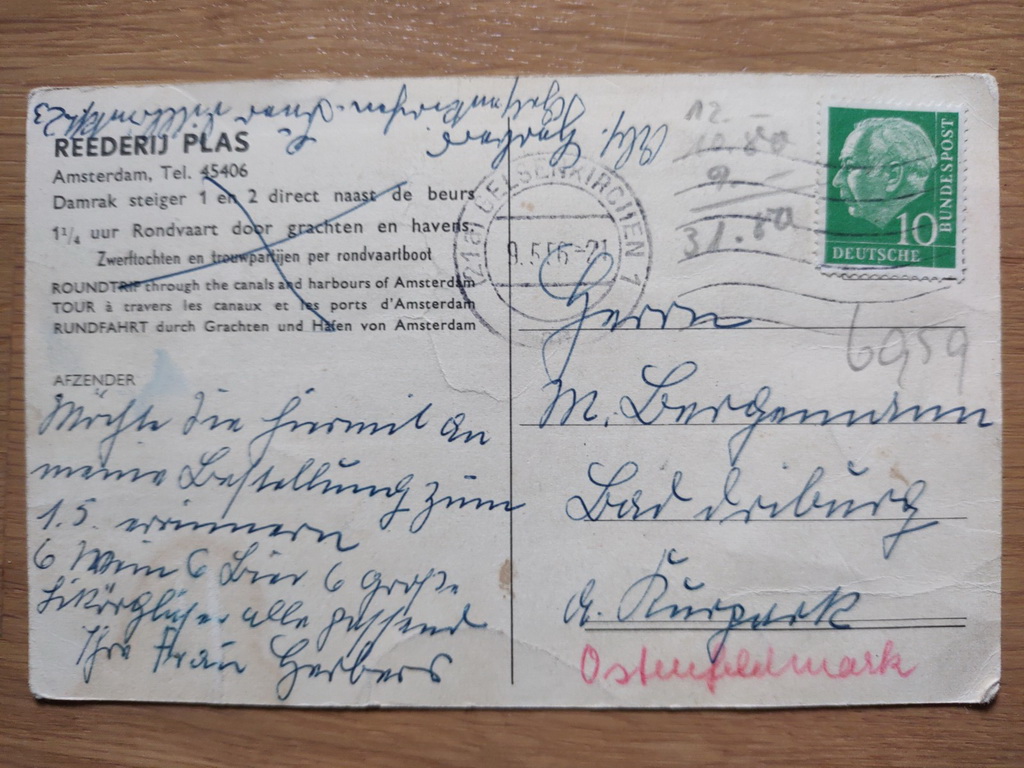 REEDERIJ PLAS
Amsterdam, Tel. 45406
Damrak steiger 1 en 2 direct naast de beurs
1¼ uur Rondvaart door grachten en havens.
Zwerftochten en trouwpartijen per rondvaartboot
ROUNDTRIP through the canals and harbours of Amsterdam
TOUR à travers les canaux et les ports d'Amsterdam
RUNDFAHRT durch Grachten und Häfen von Amsterdam
AFZENDER
Möchte Sie hiermit an
meine Bestellung zum
1.5. erinnern
6 Wein 6 Bier 6 große
Likörgläser alle passend
Ihre Frau Herbers
Gelsenkirchen
(21a) GELSENKIRCHEN 1
9.5.56-21
12.-
10.80
9.-
31.80
BUNDESPOST
10
DEUTSCHE
6959
Herrn
M. Bergemann
Bad Driburg
a. Kurpark
Ostenfeldmark